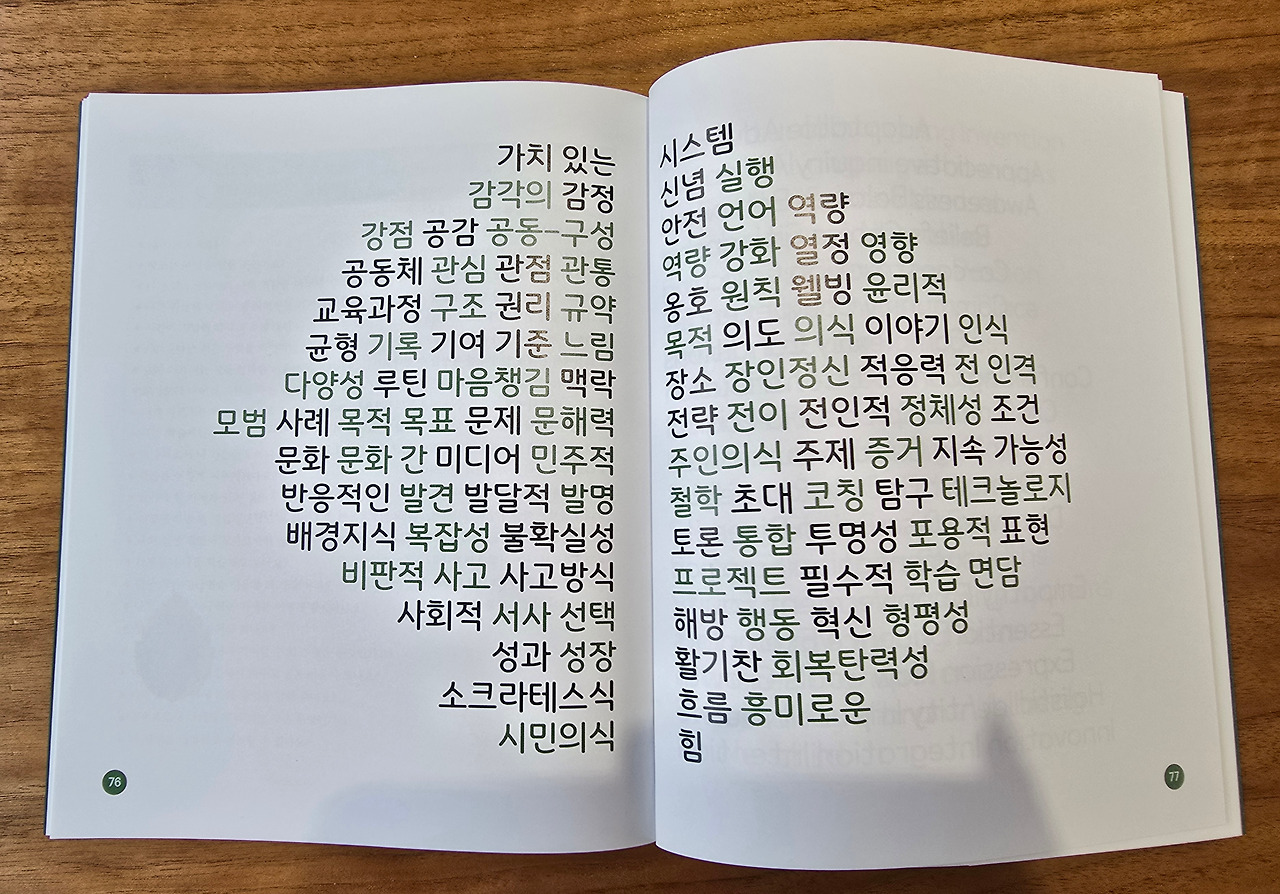 가치 있는
감각의 감정
강점 공감 공동-구성
공동체 관심 관점 관통
교육과정 구조 권리 규약
균형 기록 기여 기준 느림
다양성 루틴 마음챙김 맥락
모범 사례 목적 목표 문제 문해력
문화 문화 간 미디어 민주적
반응적인 발견 발달적 발명
배경지식 복잡성 불확실성
비판적 사고 사고방식
사회적 서사 선택
성과 성장
소크라테스식
시민의식
76
시스템
신념 실행
안전 언어 역량
역량 강화 열정 영향
옹호 원칙 웰빙 윤리적
목적 의도 의식 이야기 인식
장소 장인정신 적응력 전 인격
전략 전이 전인적 정체성 조건
주인의식 주제 증거 지속 가능성
철학 초대 코칭 탐구 테크놀로지
토론 통합 투명성 포용적 표현
프로젝트 필수적 학습 면담
해방 행동 혁신 형평성
활기찬 회복탄력성
흐름 흥미로운
힘
77